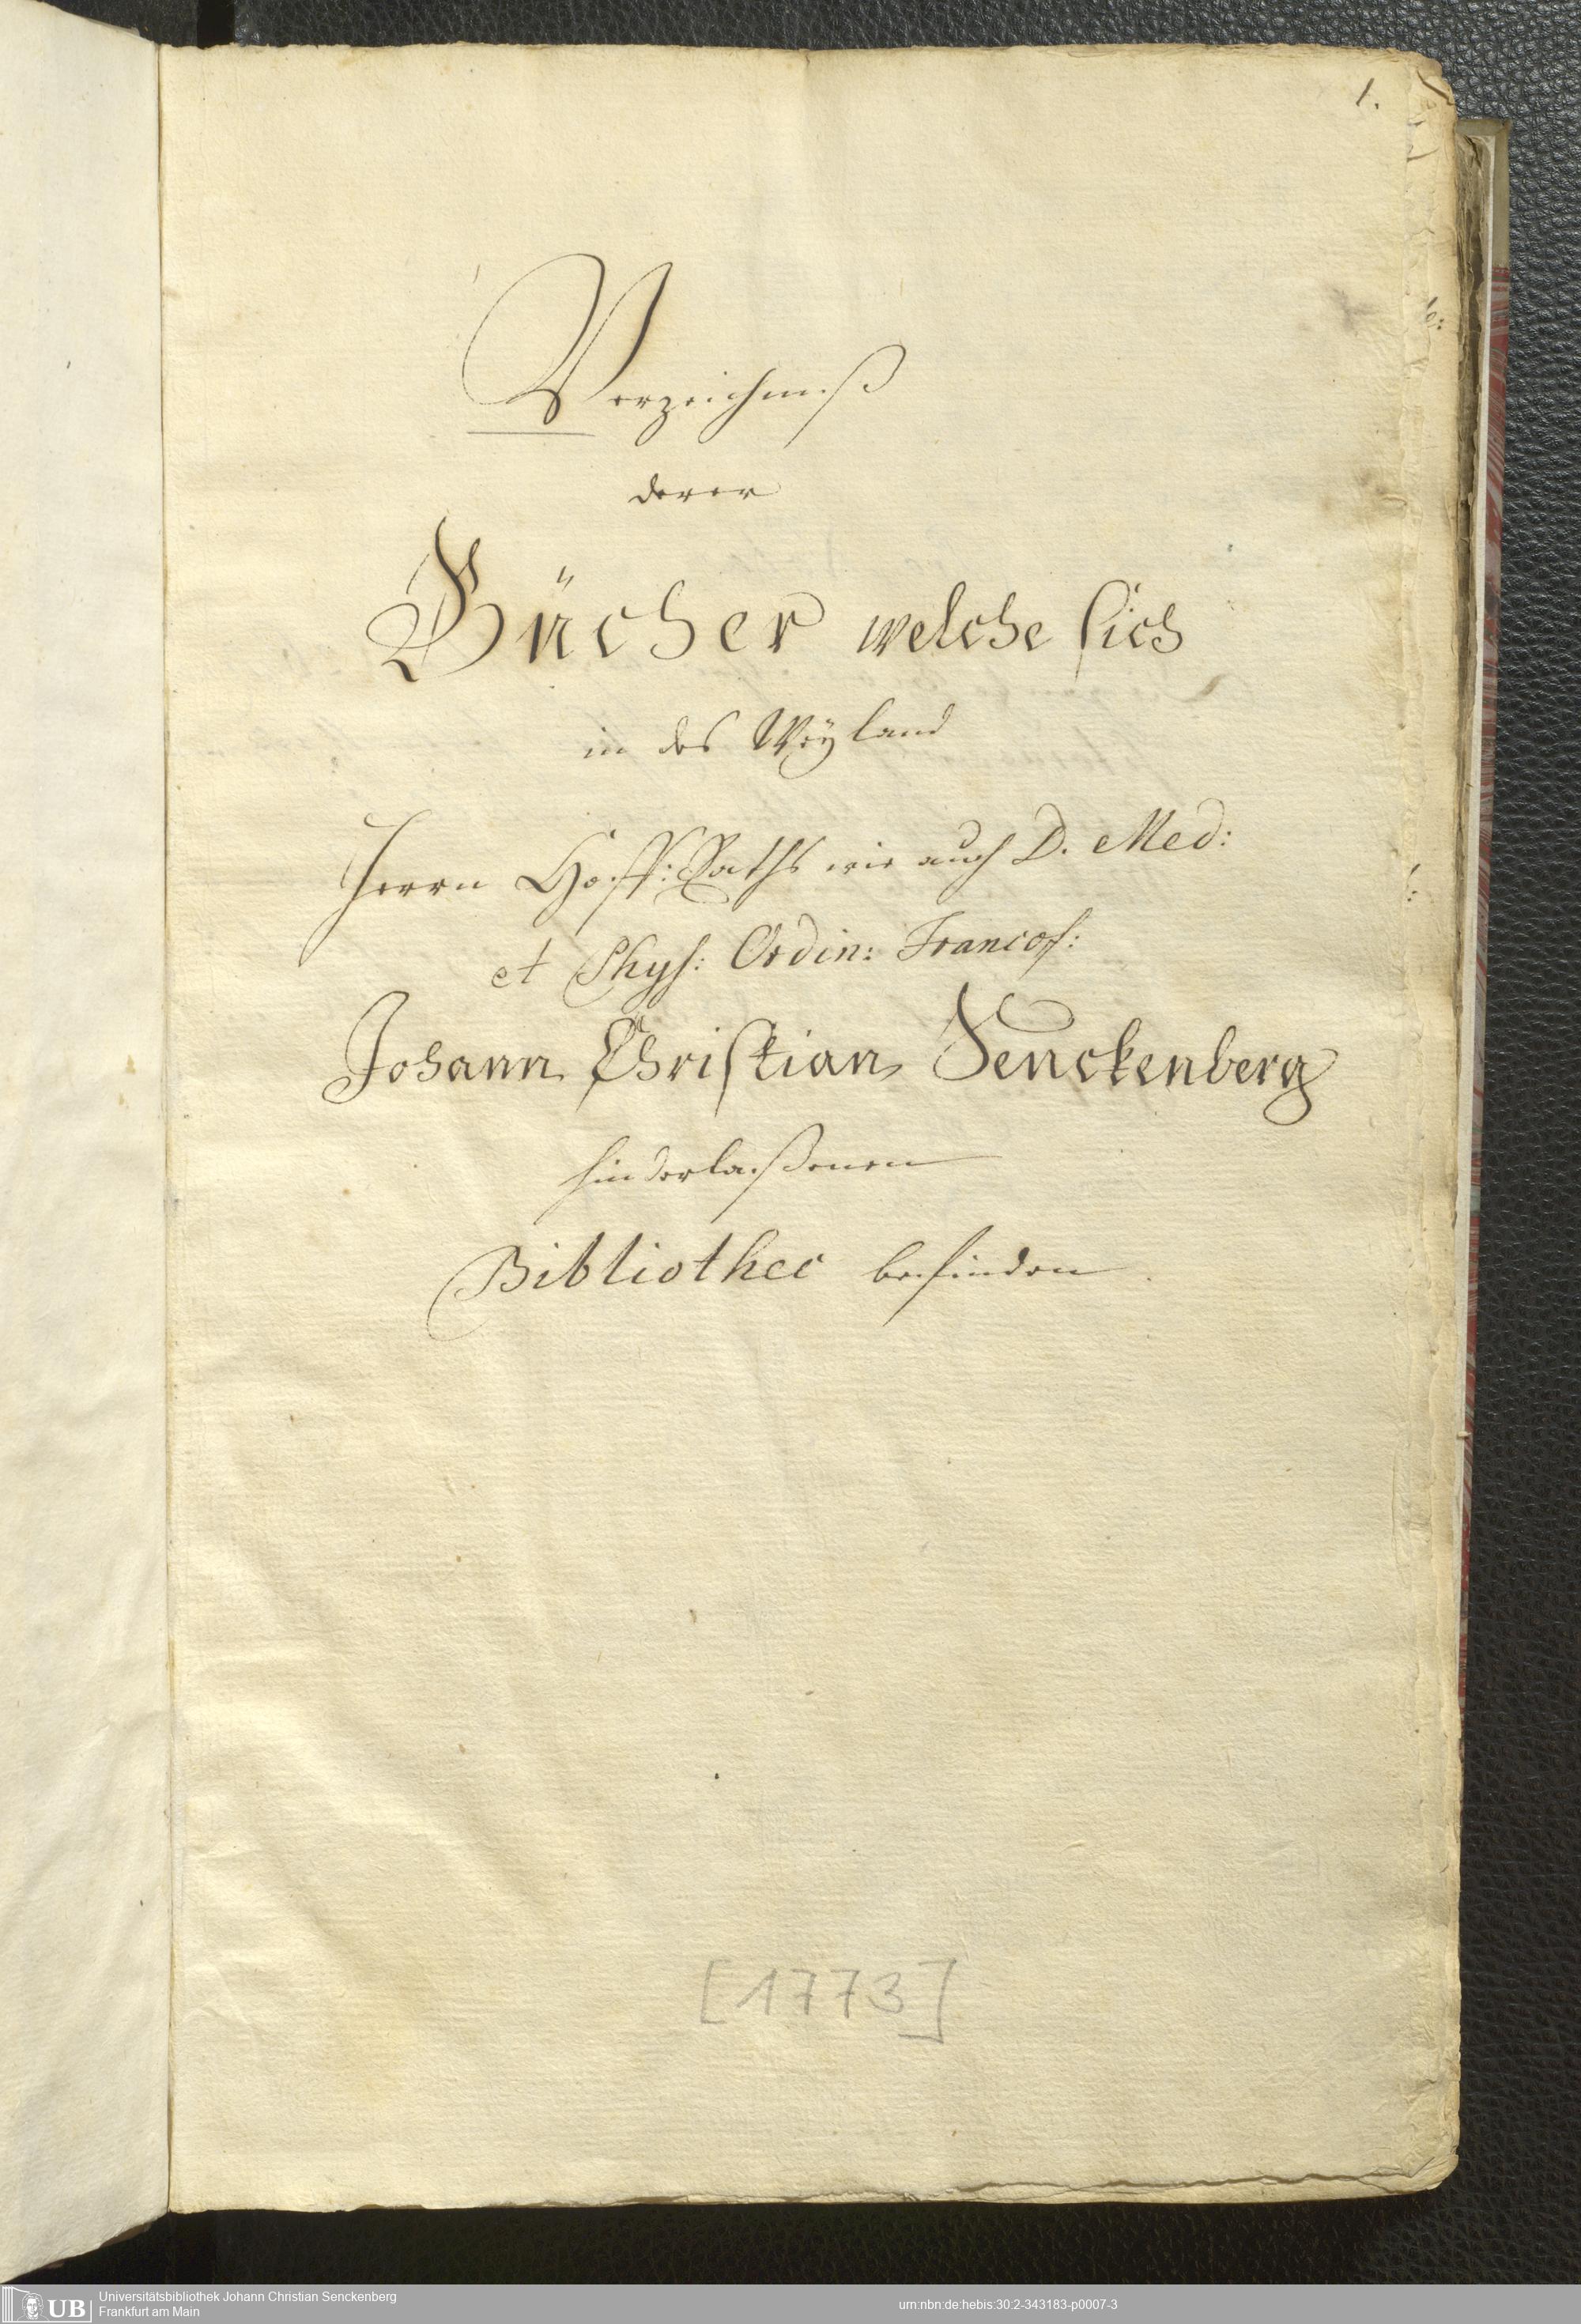 1.
Verzeichniß
derer
Bücher welche sich
in des Weÿland
Herrn Hoff: Raths wie auch D. Med:
et Phys: Ordin: Francof:
Johann Christian Senckenberg
hinderlaßenen
Bibliothec befinden
[1773]
UB Universitätsbibliothek Johann Christian Senckenberg
Frankfurt am Main
urn:nbn:de:hebis:30:2-343183-p0007-3